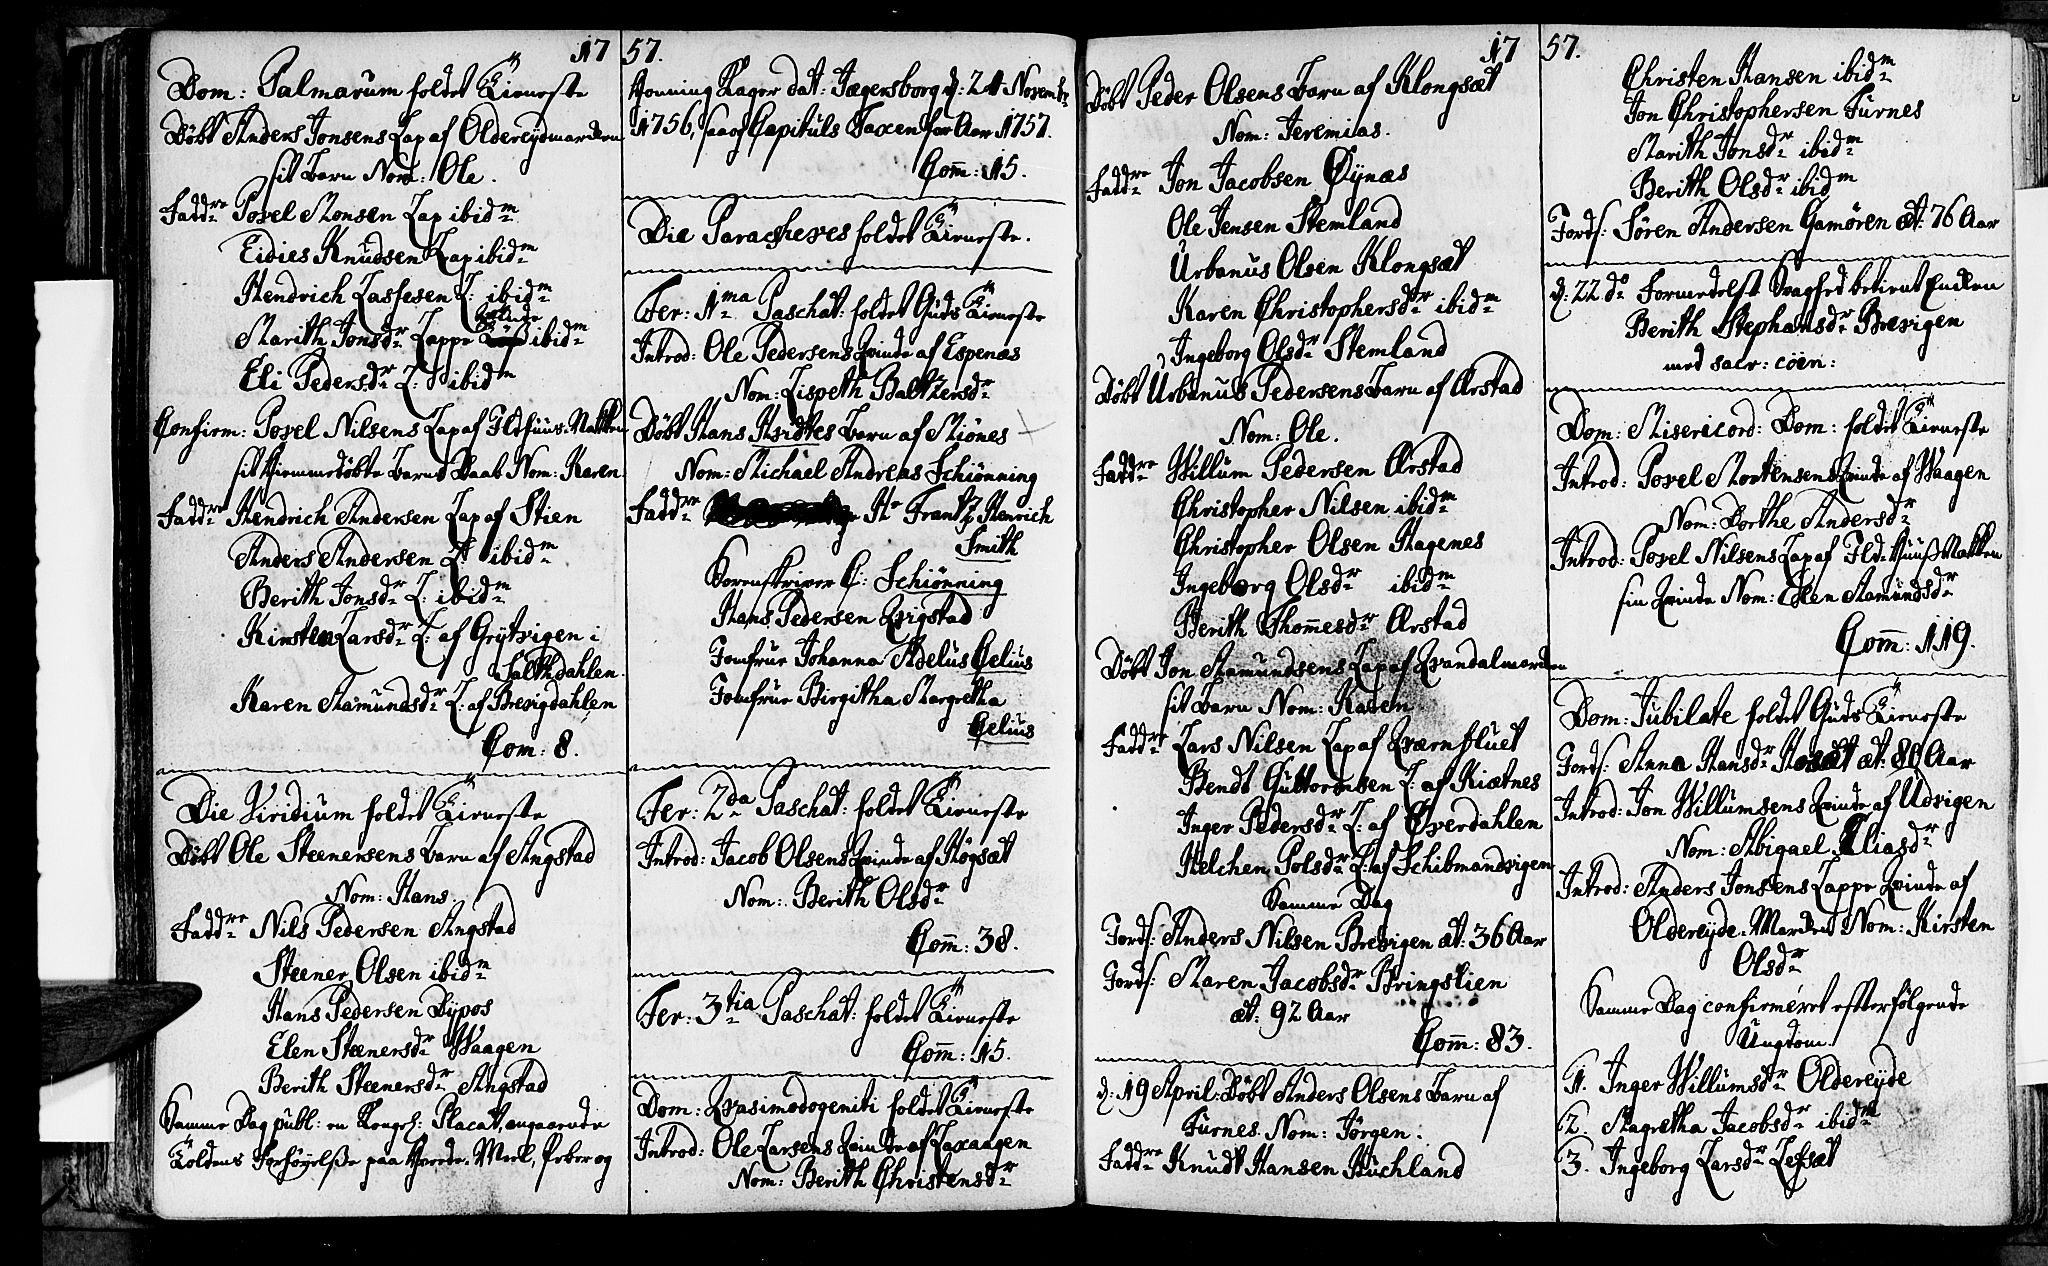 17 57.
Dom: Palmarum holdet Tieneste
Döbt Anders Jonsens Lap af Oldereydmarchen
sit Barn Nom: Ole.
Faddre Povel Monsen Lap ibidm
Eidies Knudsen Lap ibidm
Hendrich Lassesen L: ibidm
Qvinde
Marith Jonsdr Lappe ibidm
Eli Pedersdr L: ibidm
Confirm: Povel Nilsens Lap af Ildhuus-Nakken
sit hiemmedöbte Barns Daab Nom: Karen
Faddre Hendrich Andersen Lap af Stien
Anders Andersen L: ibidm
Berith Jonsdr L: ibidm
Kirsten Larsdr L: af Grytvigen i
Saltdahlen.
Karen Amundsdr L: af Brevigdahlen
Com: 8.
Die Viridium holdet Tieneste
Döbt Ole Steenersens Barn af Angstad
Nom: Hans
Faddre Nils Pedersen Angstad
Steener Olsen ibidm
Hans Pedersen Dypos
Elen Steenersdr Waagen
Berith Steenersdr Angstad
Samme Dag publ: en Kongel: Placat, angaaende
Toldens Forhöyelse paa Hvede-Meel, Peber og
Honning Kager dat: Jægersborg d: 24 Novembr
1756, saa og Capituls Taxen for Aar 1757.
Com̄: 15.
Die Parascheves holdet Tieneste.
Fer: 1ma Paschat: holdet Guds Tieneste
Introd: Ole Pedersens Qvinde af Espenæs
Nom: Lisbeth Baltzersdr
Döbt Hans Hvidtes Barn af Miönes
Nom: Michael Andreas Schiönning
Faddre Hr Frantz Henrich
Smith
Sorenskriver C: Schiönning
Hans Pedersen Qvigstad
Jomfrue Johanna Adelus Celius
Jomfrue Birgitha Margretha
Celius
Fer: 2da Paschat: holdet Tieneste
Introd: Jacob Olsens Qvinde af Høgsæt
Nom: Berith Olsdr
Com̄: 38.
Fer: 3tia Paschat: holdet Tieneste
Com̄: 15.
Dom: Qvasimodogeniti holdet Tieneste
Introd: Ole Larsens Qvinde af Laxaagen
Nom: Berith Christensdr
17 57.
Döbt Peder Olsens Barn af Klongsæt
Nom: Jeremias.
Faddre Jon Jacobsen Øynæs
Ole Jensen Stemland
Urbanus Olsen Klongsæt
Karen Christophersdr ibidm
Ingeborg Olsdr Stemland
Döbt Urbanus Pedersens Barn af Arstad
Nom: Ole.
Faddre Willum Pedersen Arstad
Christopher Nilsen ibidm
Christopher Olsen Hagenes
Ingeborg Olsdr ibidm
Berith Thom̄esdr Arstad
Döbt Jon Amundsens Lap af Qvandalmarchen
sit Barn Nom: Karen
Faddre Lars Nilsen Lap af Qværnfluet
Bendt Guttormsen L: af Kiætnes
Inger Pedersdr L: af Øverdahlen
Helchen Polsdr L: af Schibmandvigen
Samme Dag
Jords: Anders Nilsen Brevigen æt: 36 Aar
Jords: Maren Jacobsdr Bringslien
æt: 92 Aar
Com̄: 83.
d: 19 April: Döbt Anders Olsens Barn af
Furnes Nom: Jörgen.
Faddre Knudt Hansen Buchland
Christen Hansen ibidm
Jon Christophersen Furnes
Marith Jonsdr ibidm
Berith Olsdr ibidm
Jords: Sören Andersen Hamören æt: 76 Aar
d: 22 do Formedelst Svaghed betient Enken
Berith Stephansdr Brevigen
med sacr: coen:
Dom: Misericord: Dom: holdet Tieneste
Introd: Povel Mortensens Qvinde af Waagen
Nom: Dorthe Andersdr
Introd: Povel Nilsens Lap af Ild-Huus-Nakken
sin Qvinde Nom: Elen Amundsdr
Com̄: 119.
Dom: Jubilate holdet Guds Tieneste
Jords: Anna Hansdr Hosæt æt: 80 Aar
Introd: Jon Willumsens Qvinde af Udvigen
Nom: Abigael Eliasdr
Introd: Anders Jonsens Lappe Qvinde af
Oldereyde-Marchen Nom: Kirsten
Olsdr
Samme Dag confirmeret efterfölgende
Ungdom.
1. Inger Willumsdr Oldereyde
2. Magretha Jacobsdr ibidm
3. Ingeborg Larsdr Lefsæt